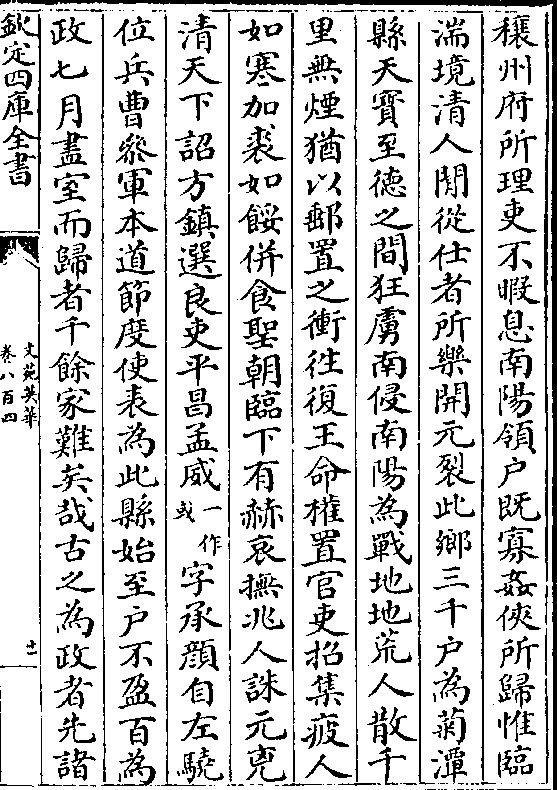 穰州府所理吏不暇息南陽領户既寡姦俠所歸惟臨
湍境清人閒從仕者所樂開元裂此鄉三千户為菊潭
縣天寶至德之間狂虜南侵南陽為戰地地荒人散千
里無煙猶以郵置之衝徃復王命權置官吏招集疲人
如寒加裘如餒併食聖朝臨下有赫哀撫兆人誅元兇
清天下詔方鎮選良吏平昌孟威一作或字承顔自左驍
位兵曹叅軍本道節度使表為此縣始至户不盈百為
政七月盡室而歸者千餘家難矣哉古之為政者先諸
欽定四庫全書
文苑英華
卷八百四
十一